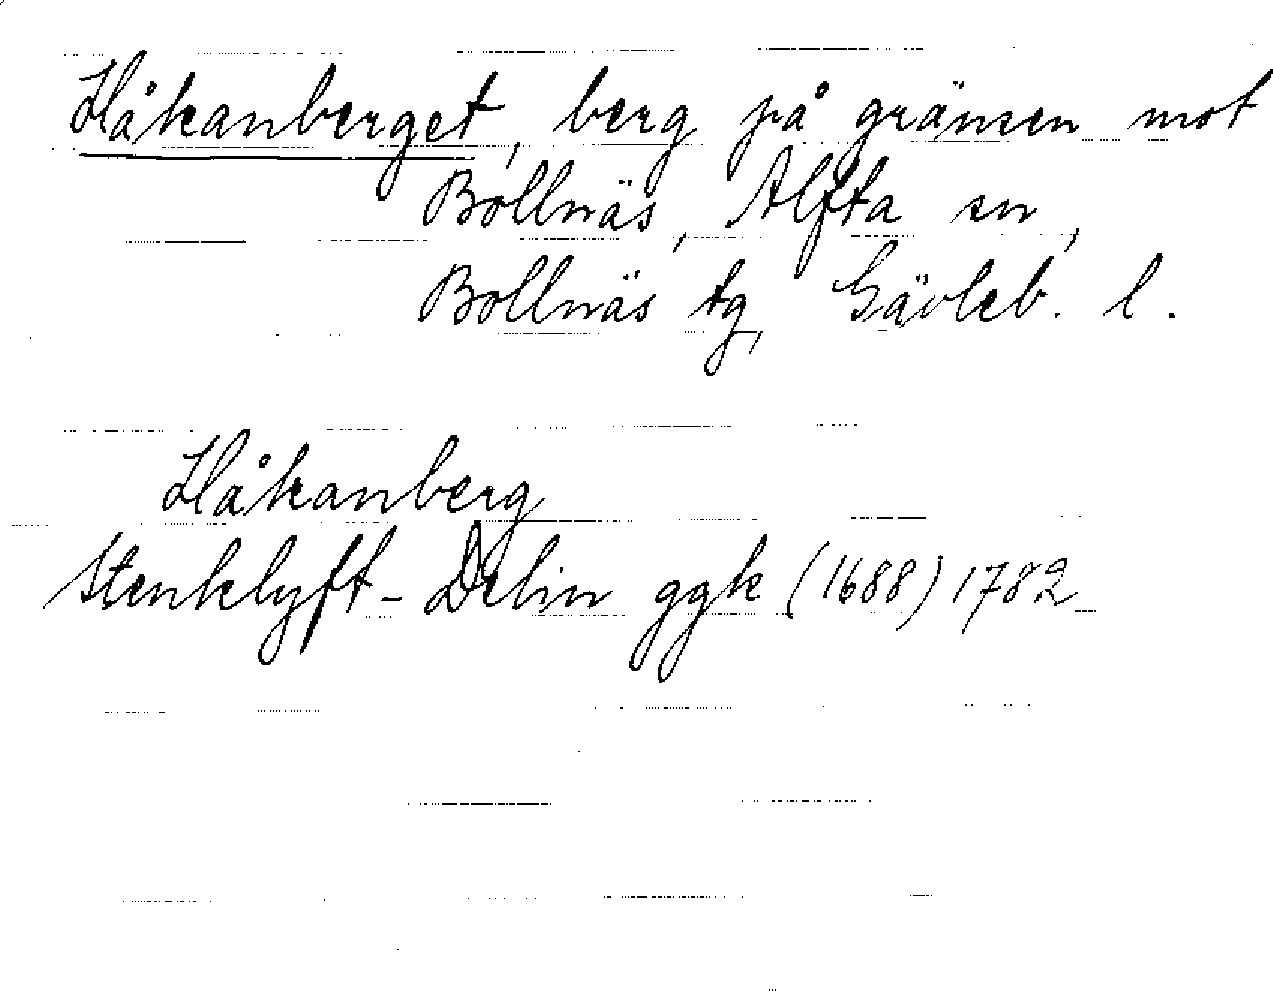 Håkanberget, berg på gränsen mot
Bollnäs, Alfta sn,
Bollnäs tg, Gävleb. l.
Håkanberg
Stenklyft - Delin ggk (1688) 1782